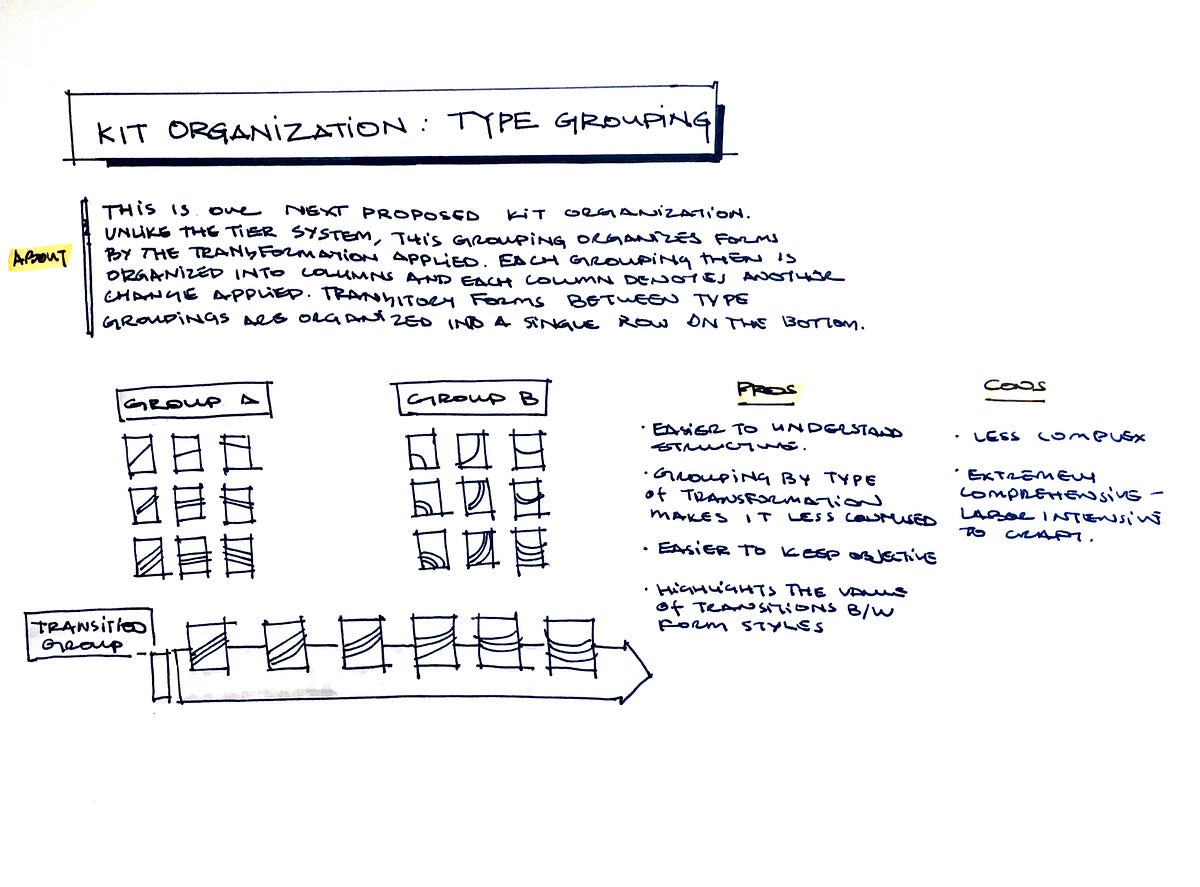 KIT ORGANIZATION : TYPE GROUPING
ABOUT
THIS IS OUR NEXT PROPOSED KIT ORGANIZATION.
UNLIKE THE TIER SYSTEM, THIS GROUPING ORGANIZES FORMS
BY THE TRANSFORMATION APPLIED. EACH GROUPING THEN IS
ORGANIZED INTO COLUMNS AND EACH COLUMN DENOTES ANOTHER
CHANGE APPLIED. TRANSITORY FORMS BETWEEN TYPE
GROUPINGS ARE ORGANIZED INTO A SINGLE ROW ON THE BOTTOM.
GROUP A
GROUP B
TRANSITION
GROUP
PROS
· EASIER TO UNDERSTAND
STRUCTURE.
· GROUPING BY TYPE
OF TRANSFORMATION
MAKES IT LESS CONFUSED
· EASIER TO KEEP OBJECTIVE
· HIGHLIGHTS THE VALUE
OF TRANSITIONS B/W
FORM STYLES
CONS
· LESS COMPLEX
· EXTREMELY
COMPREHENSIVE -
LABOR INTENSIVE
TO CRAFT.